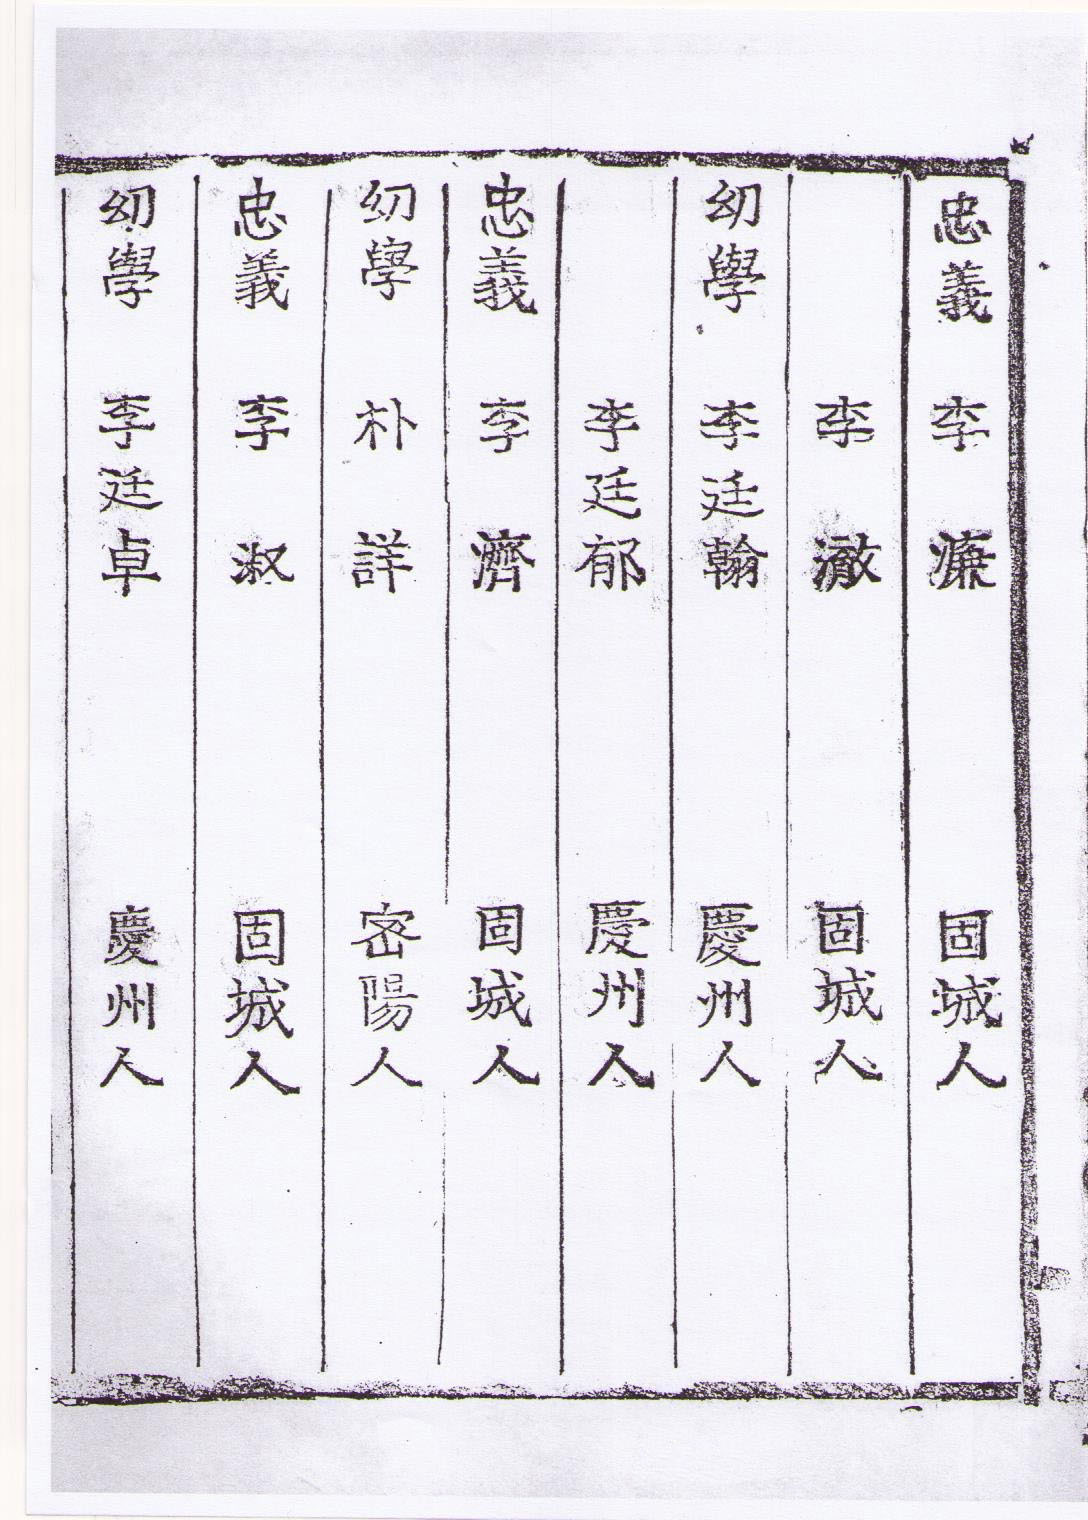 忠義 李濂 固城人
李澈 固城人
幼學 李廷翰 慶州人
李廷郁 慶州人
忠義 李濟 固城人
幼學 朴詳 密陽人
忠義 李淑 固城人
幼學 李廷卓 慶州人